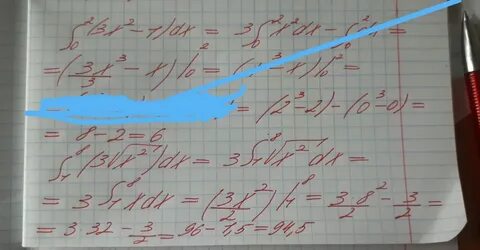 ∫₀²(3x²-1)dx = 3∫₀²x²dx -
= (3x³/3 - x)|₀² = ( ³-x)|₀² =
= (2³-2)-(0³-0) =
= 8-2=6
∫₁⁸(3√x²)dx = 3∫₁⁸√x² dx =
= 3∫₁⁸xdx = (3x²/2)|₁⁸ = 3·8²/2 - 3/2 =
= 3·32 - 3/2 = 96-1,5 = 94,5